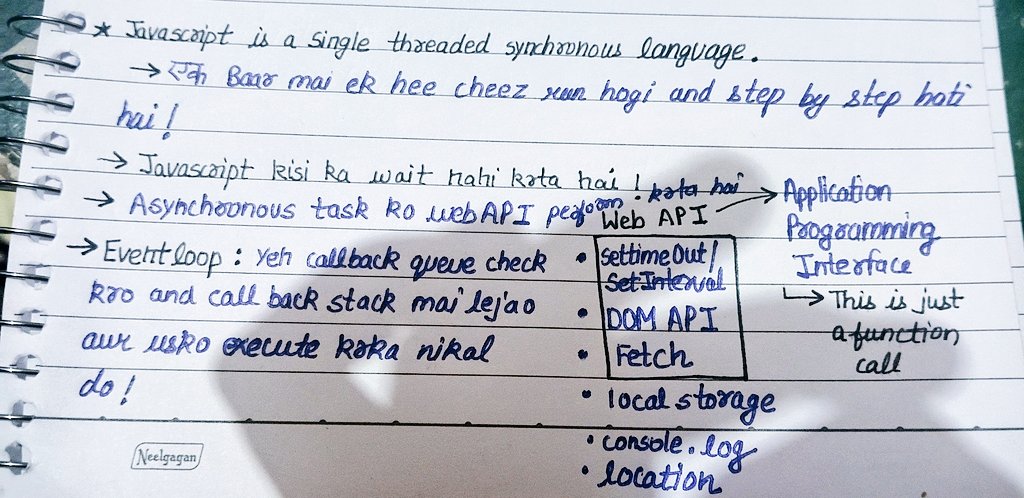 * Javascript is a single threaded synchronous language.
→ एक Baar mai ek hee cheez run hogi and step by step hoti
hai!
→ Javascript kisi ka wait nahi krta hai !
→ Asynchronous task ko web API perform krta hai
→ Event loop : Yeh callback queue check
kro and call back stack mai lejao
aur usko execute krka nikal
do!
Web API → Application
Programming
Interface
↳ This is just
a function
call
• SettimeOut/
SetInterval
• DOM API
• Fetch
• local storage
• console.log
• location
Neelgagan